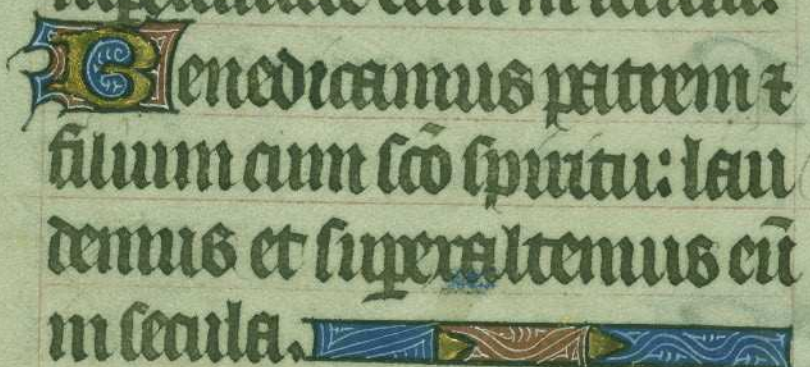 Benedicamus patrem ⁊
filium cum sc̄o spiritu: lau
demus et superaltemus eū
in secula.